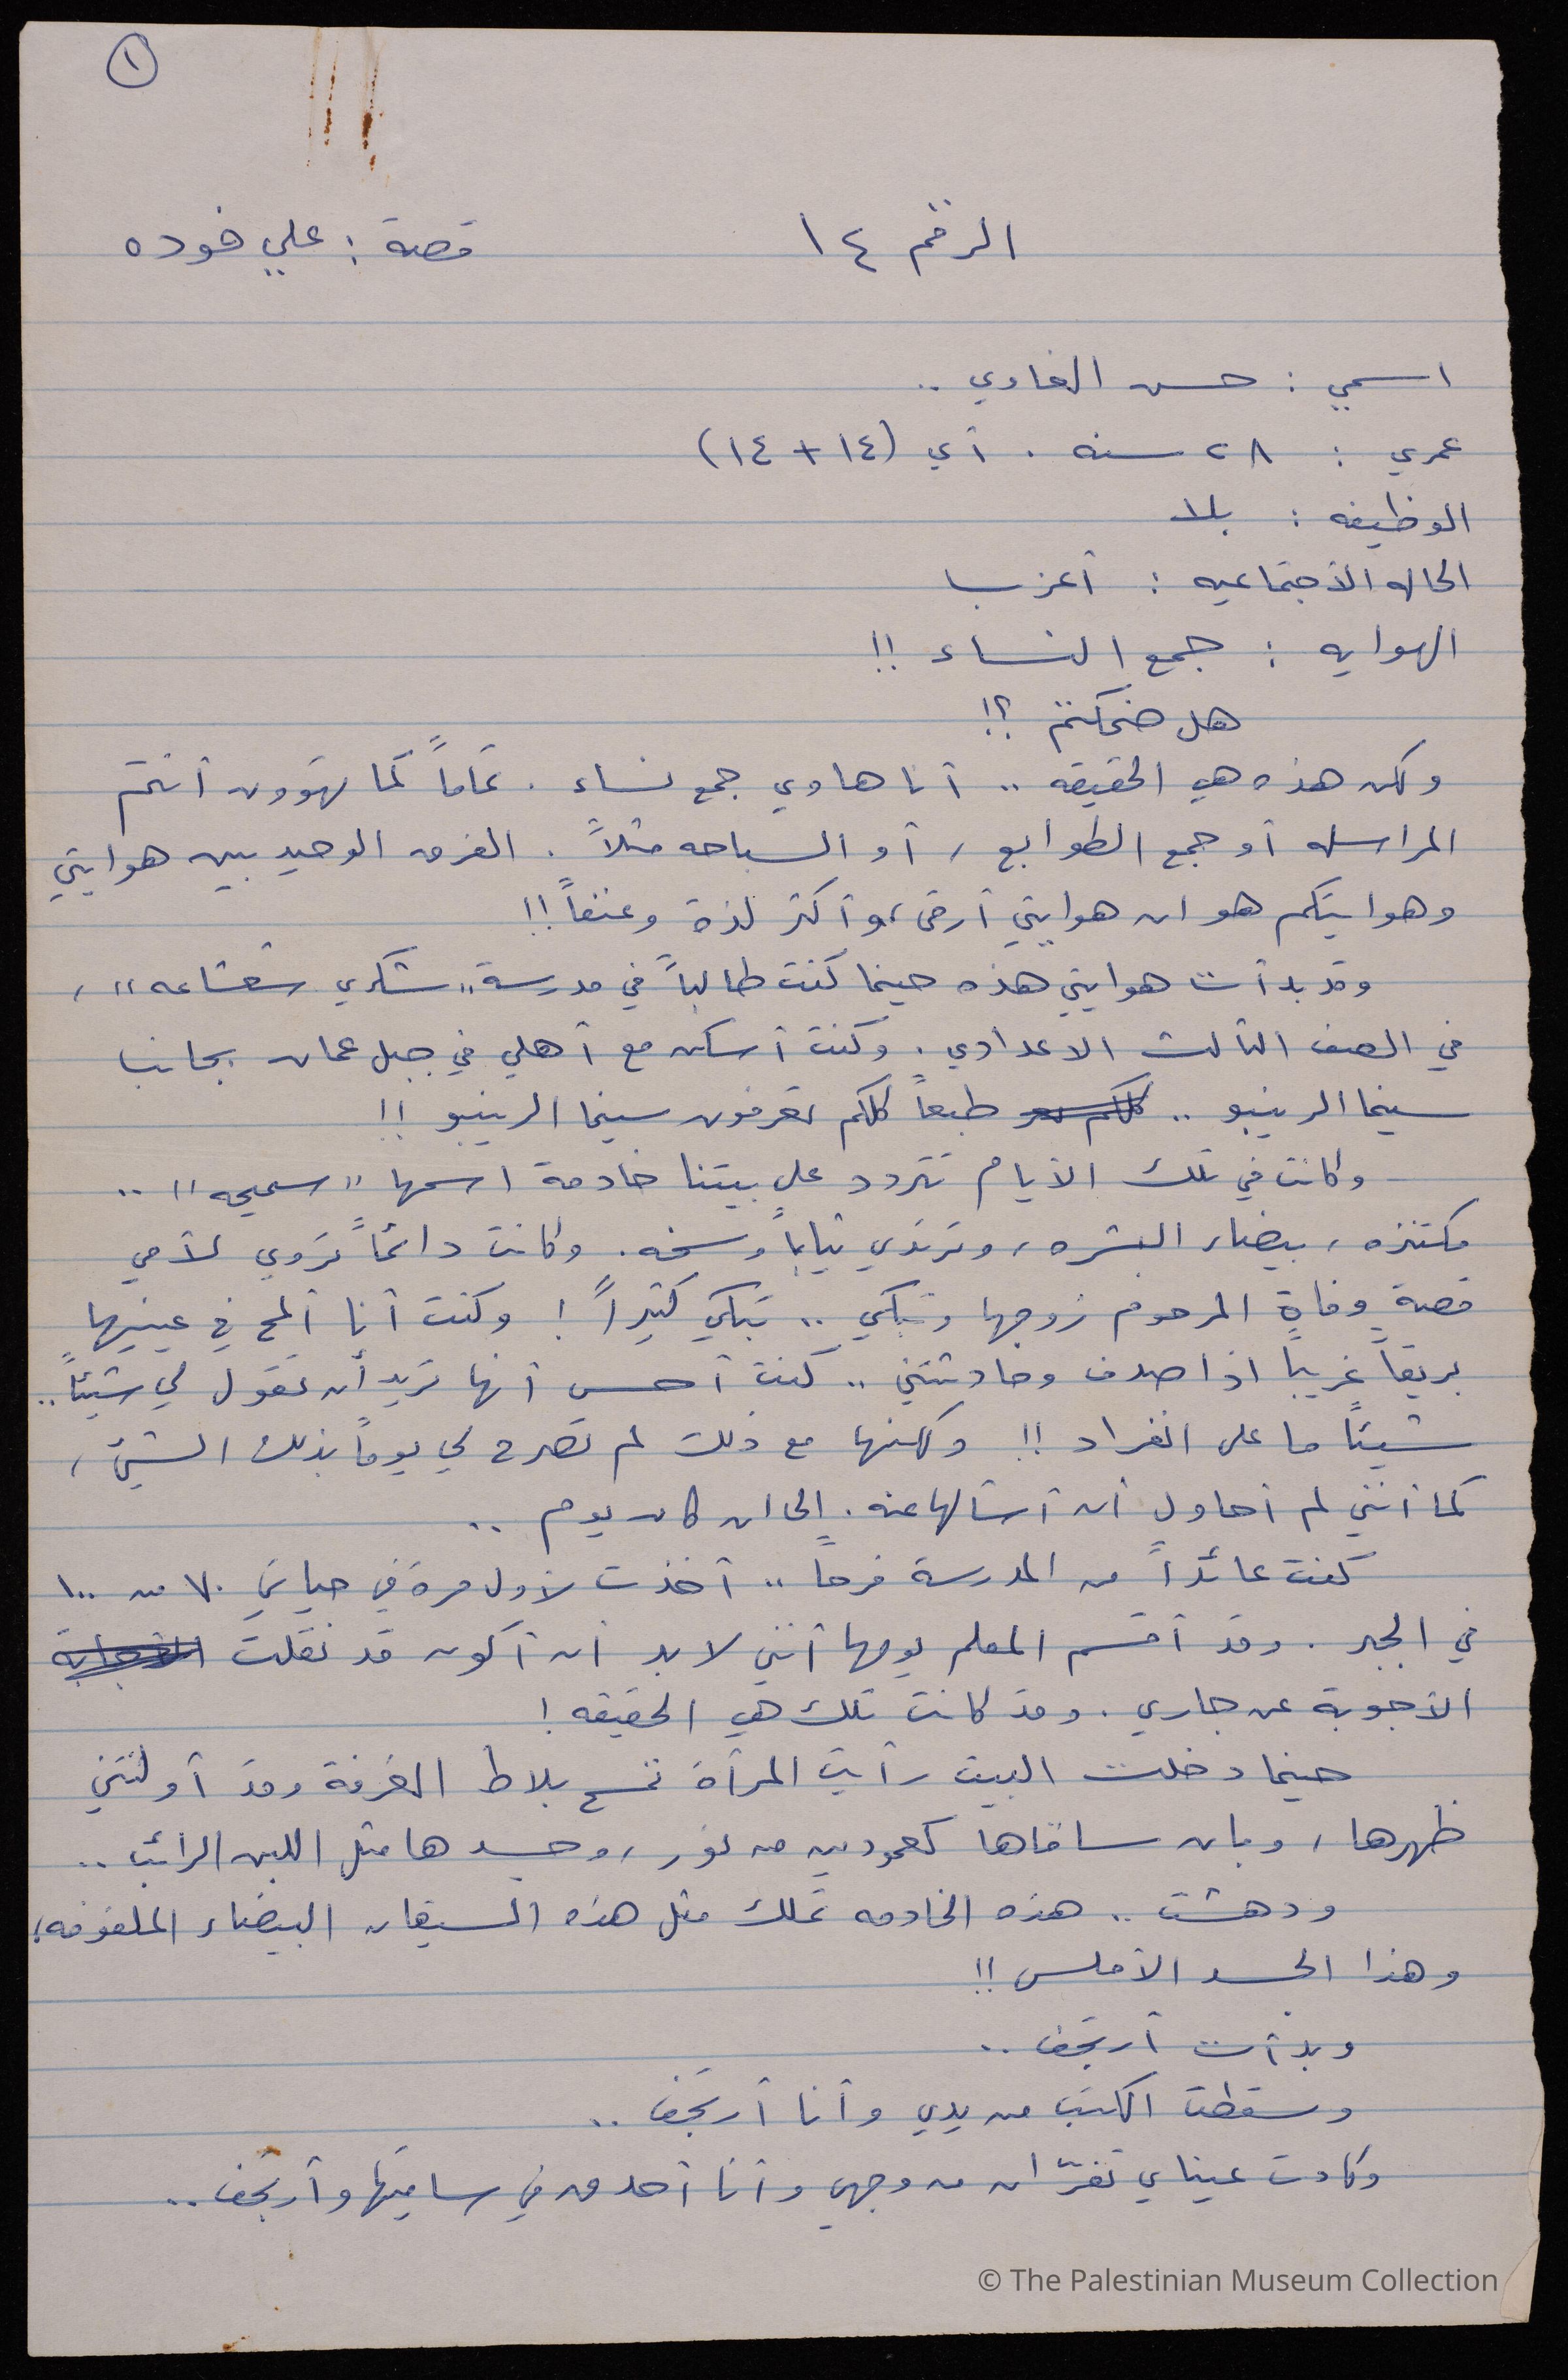 ١
الرقم ١٤
قصة : علي فوده
اسمي : حسن الغاوي ..
عمري : ٢٨ سنه . أي (١٤ + ١٤)
الوظيفه : بلا
الحاله الأجتماعيه : أعزب
الهوايه : جمع النساء !!
هل ضحكتم ؟!
ولكن هذه هي الحقيقه .. أنا هاوي جمع نساء . تماماً كما تهوون أنتم
المراسله أو جمع الطوابع ، أو السباحه مثلاً . الفرق الوحيد بين هوايتي
وهوايتكم هو ان هوايتي أرقى ، وأكثر لذة وعنفاً !!
وقد بدأت هوايتي هذه حينما كنت طالباً في مدرسة "شكري شعشاعه" ،
في الصف الثالث الاعدادي . وكنت أسكن مع أهلي في جبل عمان بجانب
سينما الرينبو .. طبعاً كلكم تعرفون سينما الرينبو !!
وكانت في تلك الأيام تتردد على بيتنا خادمة اسمها "سميحه" ..
مكتنزه ، بيضاء البشره ، وترتدي ثياباً وسخه . وكانت دائماً تروي لأمي
قصة وفاة المرحوم زوجها وتبكي .. تبكي كثيراً ! وكنت أنا ألمح في عينيها
بريقاً غريباً اذا صدف وحادثتني .. كنت أحس أنها تريد أن تقول لي شيئاً ..
شيئاً ما على انفراد !! ولكنها مع ذلك لم تصرح لي يوماً بذلك الشيئ ،
كما أنني لم أحاول أن أسألها عنه . إلى ان كان يوم ..
كنت عائداً من المدرسة فرحاً .. أخذت لأول مرة في حياتي ٧٠ من ١٠٠
في الجبر . وقد أقسم المعلم يومها أنني لا بد أن أكون قد نقلت الاجابة
الأجوبة عن جاري . وقد كانت تلك هي الحقيقه !
حينما دخلت البيت رأيت المرأة تمسح بلاط الغرفة وقد أولتني
ظهرها ، وبان ساقاها كعمودين من نور ، وجسدها مثل اللبن الرائب ..
ودهشت .. هذه الخادمه تملك مثل هذه السيقان البيضاء الملفوفه ؛
وهذا الجسد الأملس !!
وبدأت أرتجف ..
وسقطت الكتب من يدي وأنا أرتجف ..
وكادت عيناي تفرّان من وجهي وأنا أحدق في ساقيها وأرتجف ..
© The Palestinian Museum Collection